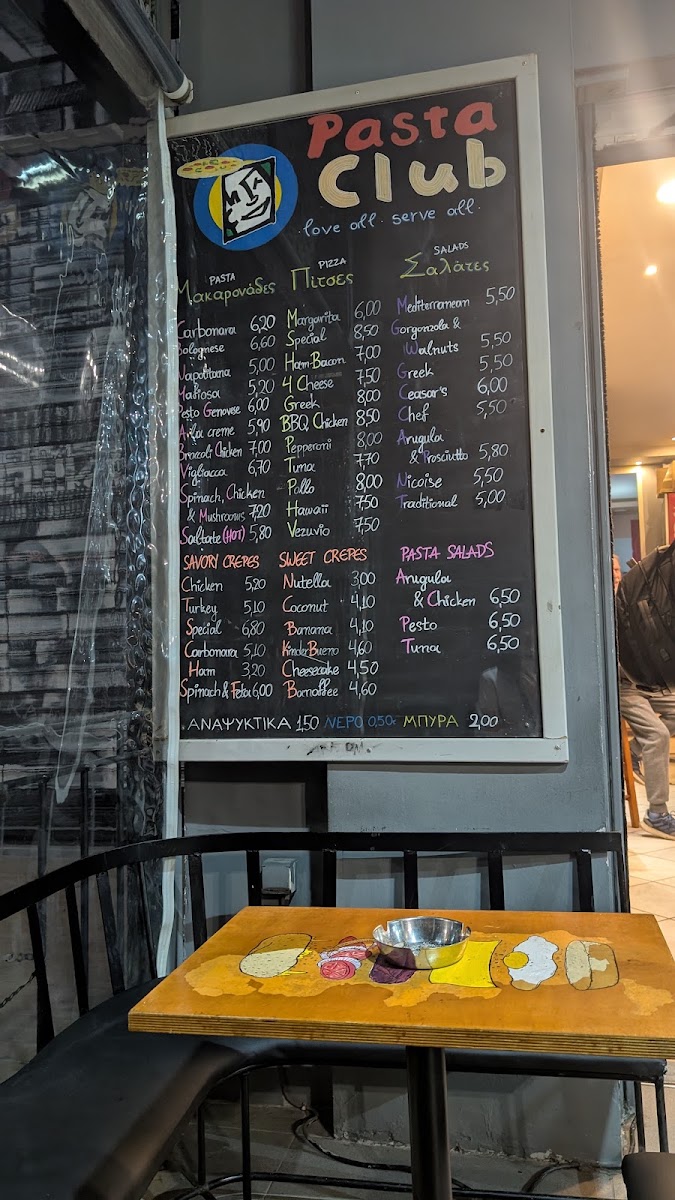 Pasta
Club
love all serve all
PASTA
Μακαρονάδες
Carbonara 6,20
Bolognese 6,60
Napolitana 5,00
5,20
Pesto Genovese 6,00
creme 5,90
Broccoli Chicken 7,00
Vigliacca 6,70
Spinach, Chicken
& Mushrooms 7,20
(HOT) 5,80
PIZZA
Πίτσες
Margarita 6,00
Special 8,50
Ham-Bacon 7,00
4 Cheese 7,50
Greek 8,00
BBQ Chicken 8,50
Pepperoni 8,00
Tuna 7,70
Pollo 8,00
Hawaii 7,50
Vezuvio 7,50
SALADS
Σαλάτες
Mediterranean 5,50
Gorgonzola &
Walnuts 5,50
Greek 5,50
Ceasar's 6,00
Chef 5,50
Arugula
& Prosciutto 5,80
Nicoise 5,50
Traditional 5,00
SAVORY CREPES
Chicken 5,20
Turkey 5,10
Special 6,80
Carbonara 5,10
Ham 3,20
Spinach & Feta 6,00
SWEET CREPES
Nutella 3,00
Coconut 4,10
Banana 4,10
Kinder Bueno 4,60
Cheesecake 4,50
Banoffee 4,60
PASTA SALADS
Arugula
& Chicken 6,50
Pesto 6,50
Tuna 6,50
ΑΝΑΨΥΚΤΙΚΑ 1,50 ΝΕΡΟ 0,50 ΜΠΥΡΑ 2,00